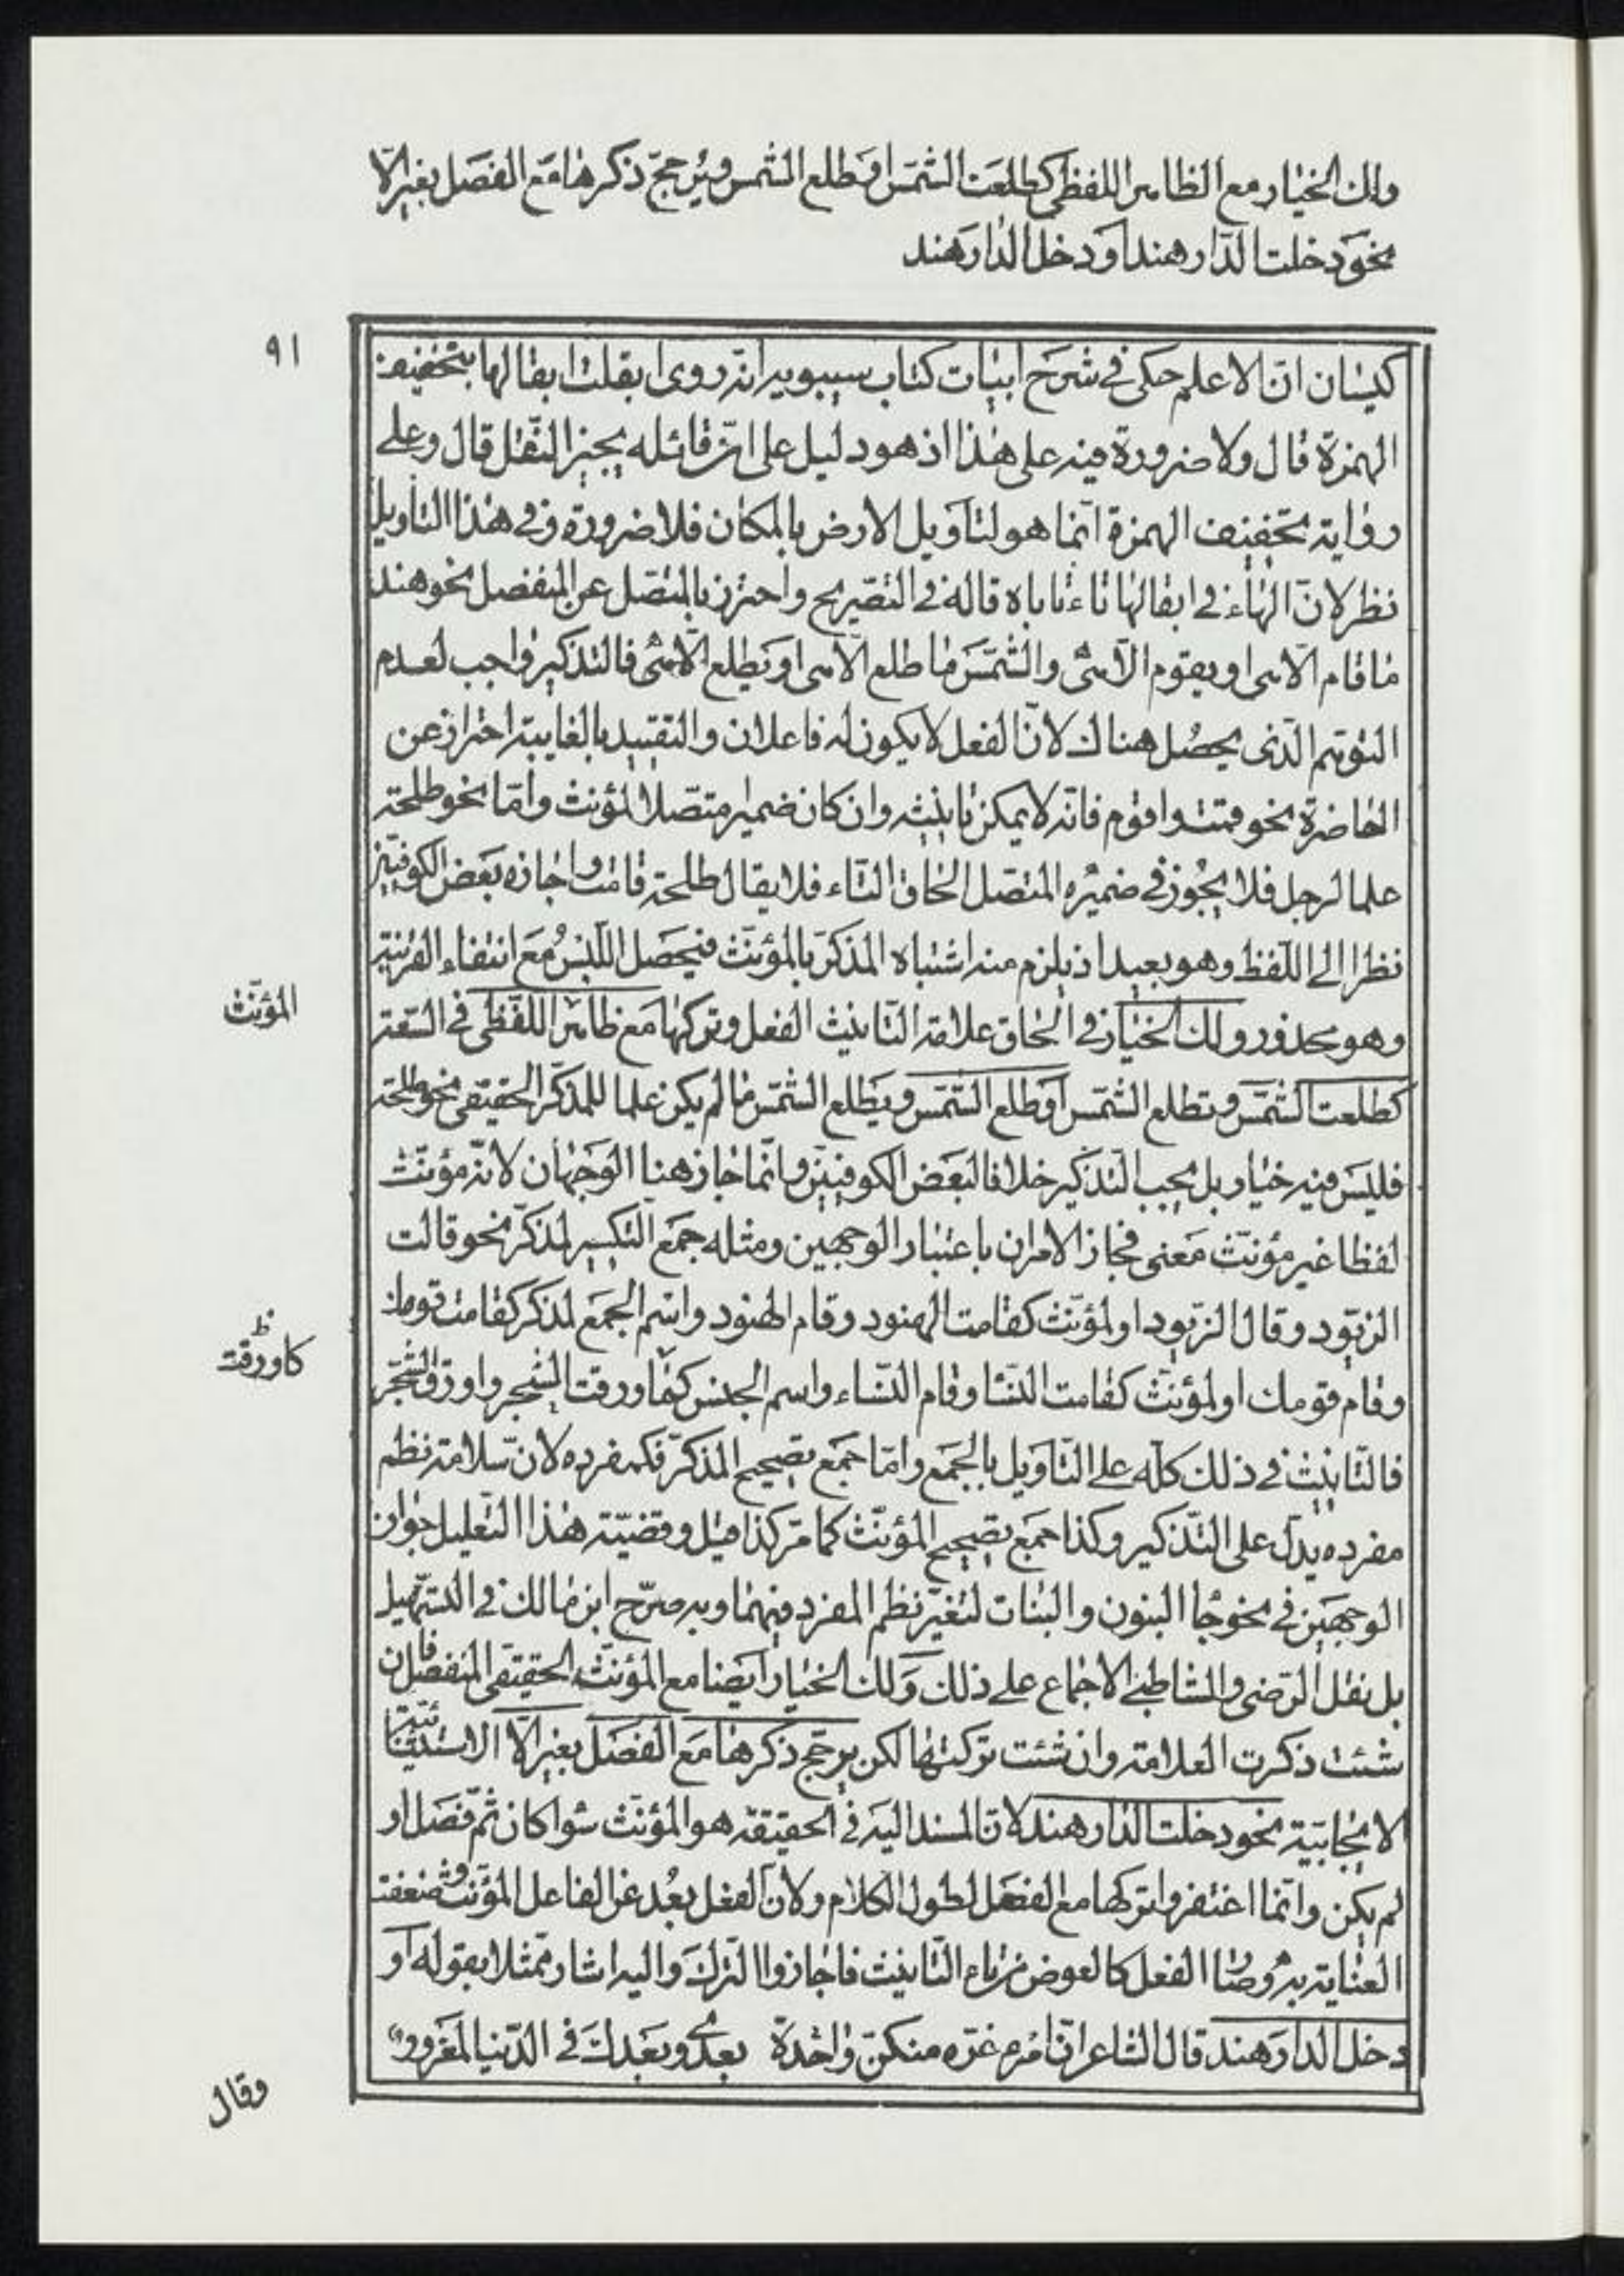 ولك الخيار مع الظاهر اللفظي كطلعت الشمس او طلع الشمس ويرجح ذكرها مع الفصل بغير الّا
نحو دخلت الدار هند او دخل الدار هند
٩١
كيسان انّ الاعلم حكى في شرح ابيات كتاب سيبويه انه روى ابقلت ابقالها بتخفيف
الهمزة قال ولا ضرورة فيه على هذا اذ هو دليل على انّ قائله يجيز النقل قال وعلى
رواية تخفيف الهمزة انّما هو لتاويل الارض بالمكان فلا ضرورة وفي هذا التاويل
نظر لانّ الهاء في ابقالها تاباه قاله في التصريح واحترز بالمتصل عن المنفصل نحو هند
ما قام الّا هي او يقوم الّا هي والشمس ما طلع الّا هي او يطلع الّا هي فالتذكير واجب لعدم
التوهم الّذي يحصل هناك لانّ الفعل لا يكون له فاعلان والتقييد بالغايبة احتراز عن
الحاضرة نحو قمت واقوم فانّه لا يمكن تانيثه وان كان ضمير متصلا لمؤنث وامّا نحو طلحة
علما لرجل فلا يجوز في ضميره المتصل الحاق التاء فلا يقال طلحة قامت واجازه بعض الكوفيين
نظرا الى اللفظ وهو بعيد اذ يلزم منه اشتباه المذكّر بالمؤنّث فيحصل اللبس مع انتفاء القرينة
وهو محذور ولك الخيار في الحاق علامة التانيث الفعل وتركها مع ظاهر اللفظي في السّعة
المؤنّث
كطلعت الشمس وتطلع الشمس او طلع الشمس ويطلع الشمس ما لم يكن علما للمذكّر الحقيقي نحو طلحة
فليس فيه خيار بل يجب التذكير خلافا لبعض الكوفيين وانّما جاز هنا الوجهان لانّه مؤنّث
لفظا غير مؤنّث معنى فجاز الامران باعتبار الوجهين ومثله جمع التكسير لمذكّر نحو قالت
الزيود وقال الزيود او لمؤنّث كقامت الهنود وقام الهنود واسم الجمع لمذكر كقامت قومك
وقام قومك او لمؤنّث كقامت النسا وقام النّساء واسم الجنس كما ورقت الشجر واورق الشجر
كاورقت
ظ
فالتانيث في ذلك كلّه على التّاويل بالجمع وامّا جمع تصحيح المذكّر فكمفرده لانّ سلامة نظم
مفرده يدلّ على التّذكير وكذا جمع تصحيح المؤنّث كما مرّ كذا قيل وقضيّة هذا التعليل جواز
الوجهين في نحو جا البنون والبنات لتغيّر نظم المفرد فيهما وبه صرّح ابن مالك في التسهيل
بل نقل الرضي والشاطبي الاجماع على ذلك ولك الخيار ايضا مع المؤنّث الحقيقي المنفصل فان
شئت ذكرت العلامة وان شئت تركتها لكن يرجح ذكرها مع الفصل بغير الّا الاستثنائيّة
الايجابيّة نحو دخلت الدار هند لانّ المسند اليه في الحقيقة هو المؤنّث سوا كان ثمّ فصل او
لم يكن وانّما اغتفروا تركها مع الفصل لطول الكلام ولانّ الفعل بعُد عن الفاعل المؤنّث وضعفت
العناية به وصار الفعل كالعوض من تاء التّانيث فاجازوا الترك واليه اشار ممثّلا بقوله او
دخل الدار هند قال الشاعر انّ امرء غرّه منكنّ واحدة بعدي وبعدك في الدّنيا لمغرور
وقال